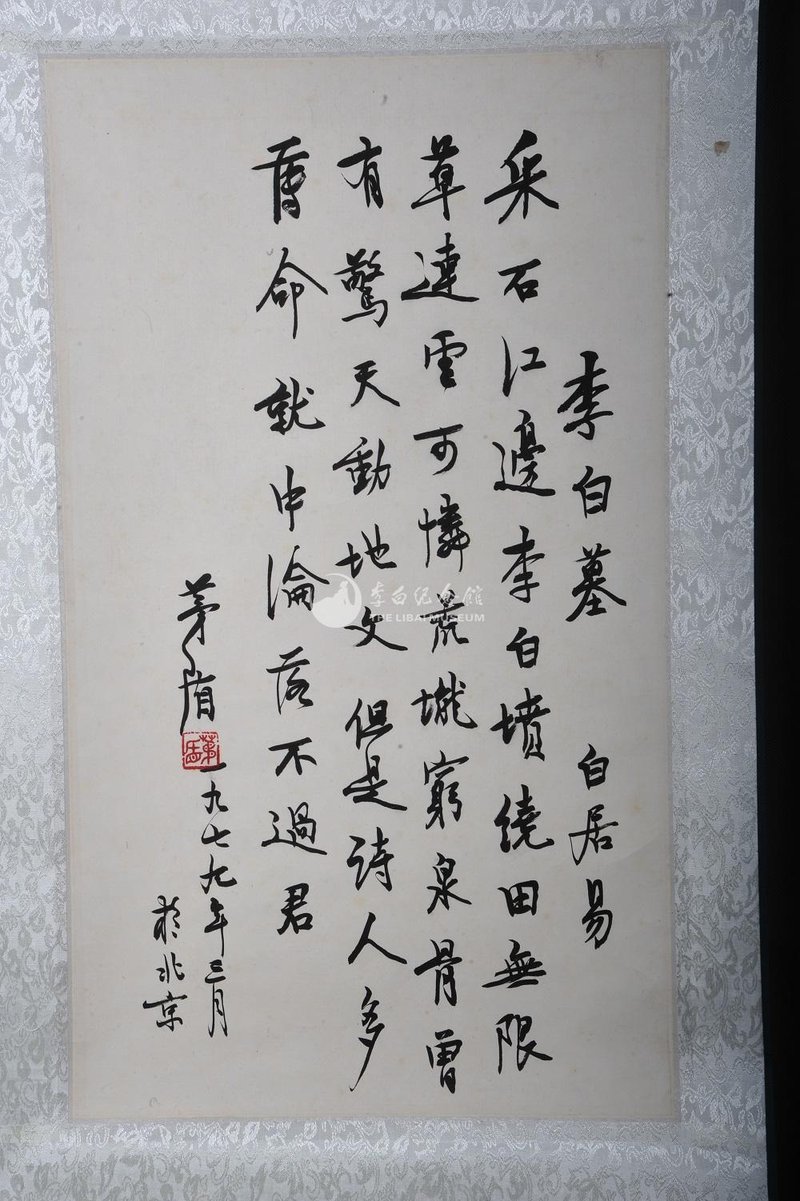 李白墓 白居易
采石江邊李白墳繞田無限
草連雲可憐荒壠窮泉骨曾
有驚天動地文但是诗人多
薄命就中淪落不過君
茅盾
一九七九年三月
於北京
李白纪念館
THE LIBAI MUSEUM